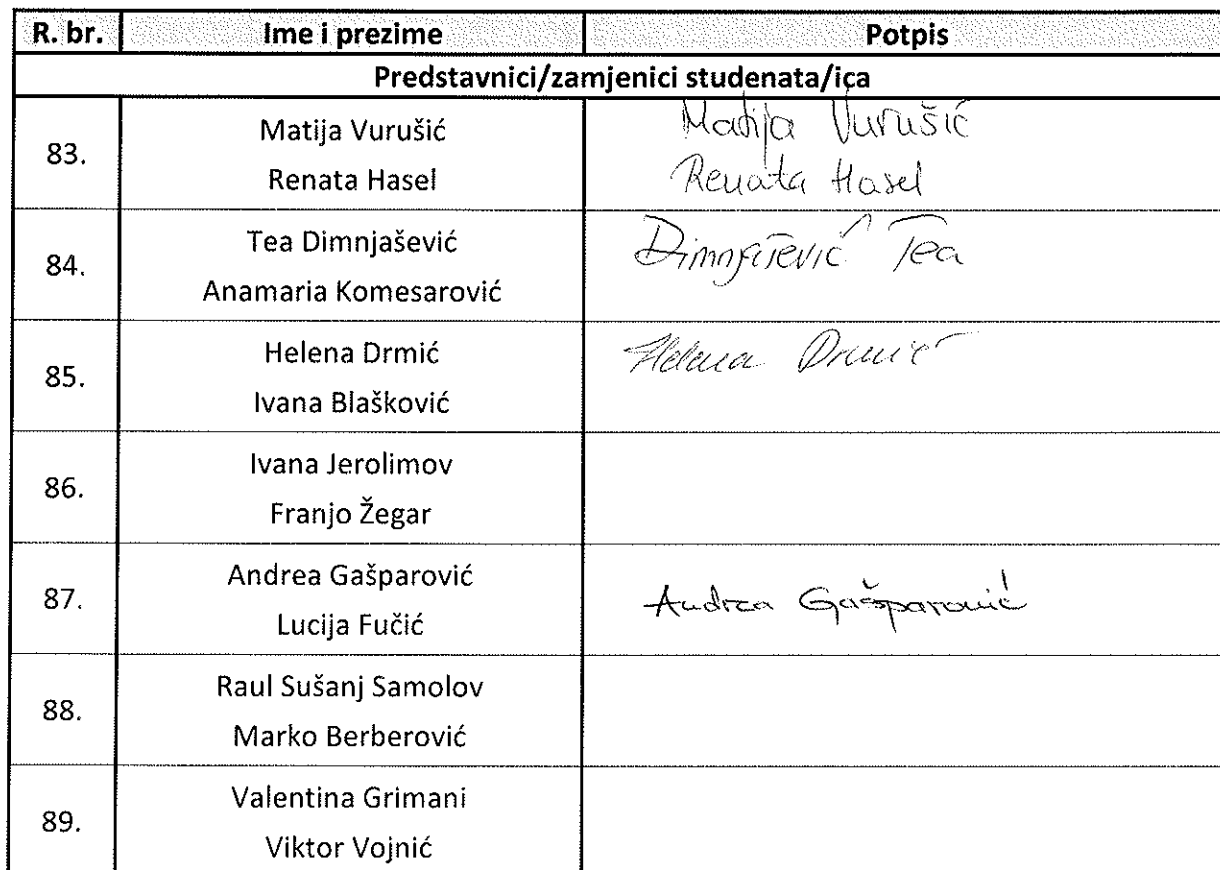 R. br. Ime i prezime Potpis
Predstavnici/zamjenici studenata/ica
83.
Matija Vurušić
Renata Hasel
Matija Vurušić
Renata Hasel
84.
Tea Dimnjašević
Anamaria Komesarović
Dimnjašević Tea
85.
Helena Drmić
Ivana Blašković
Helena Drmić
86.
Ivana Jerolimov
Franjo Žegar
87.
Andrea Gašparović
Lucija Fučić
Andrea Gašparović
88.
Raul Sušanj Samolov
Marko Berberović
89.
Valentina Grimani
Viktor Vojnić